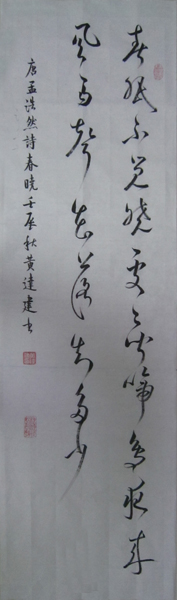 春眠不觉晓处处闻啼鸟夜来
风雨声花落知多少
唐孟浩然詩春曉壬辰秋黄達建书